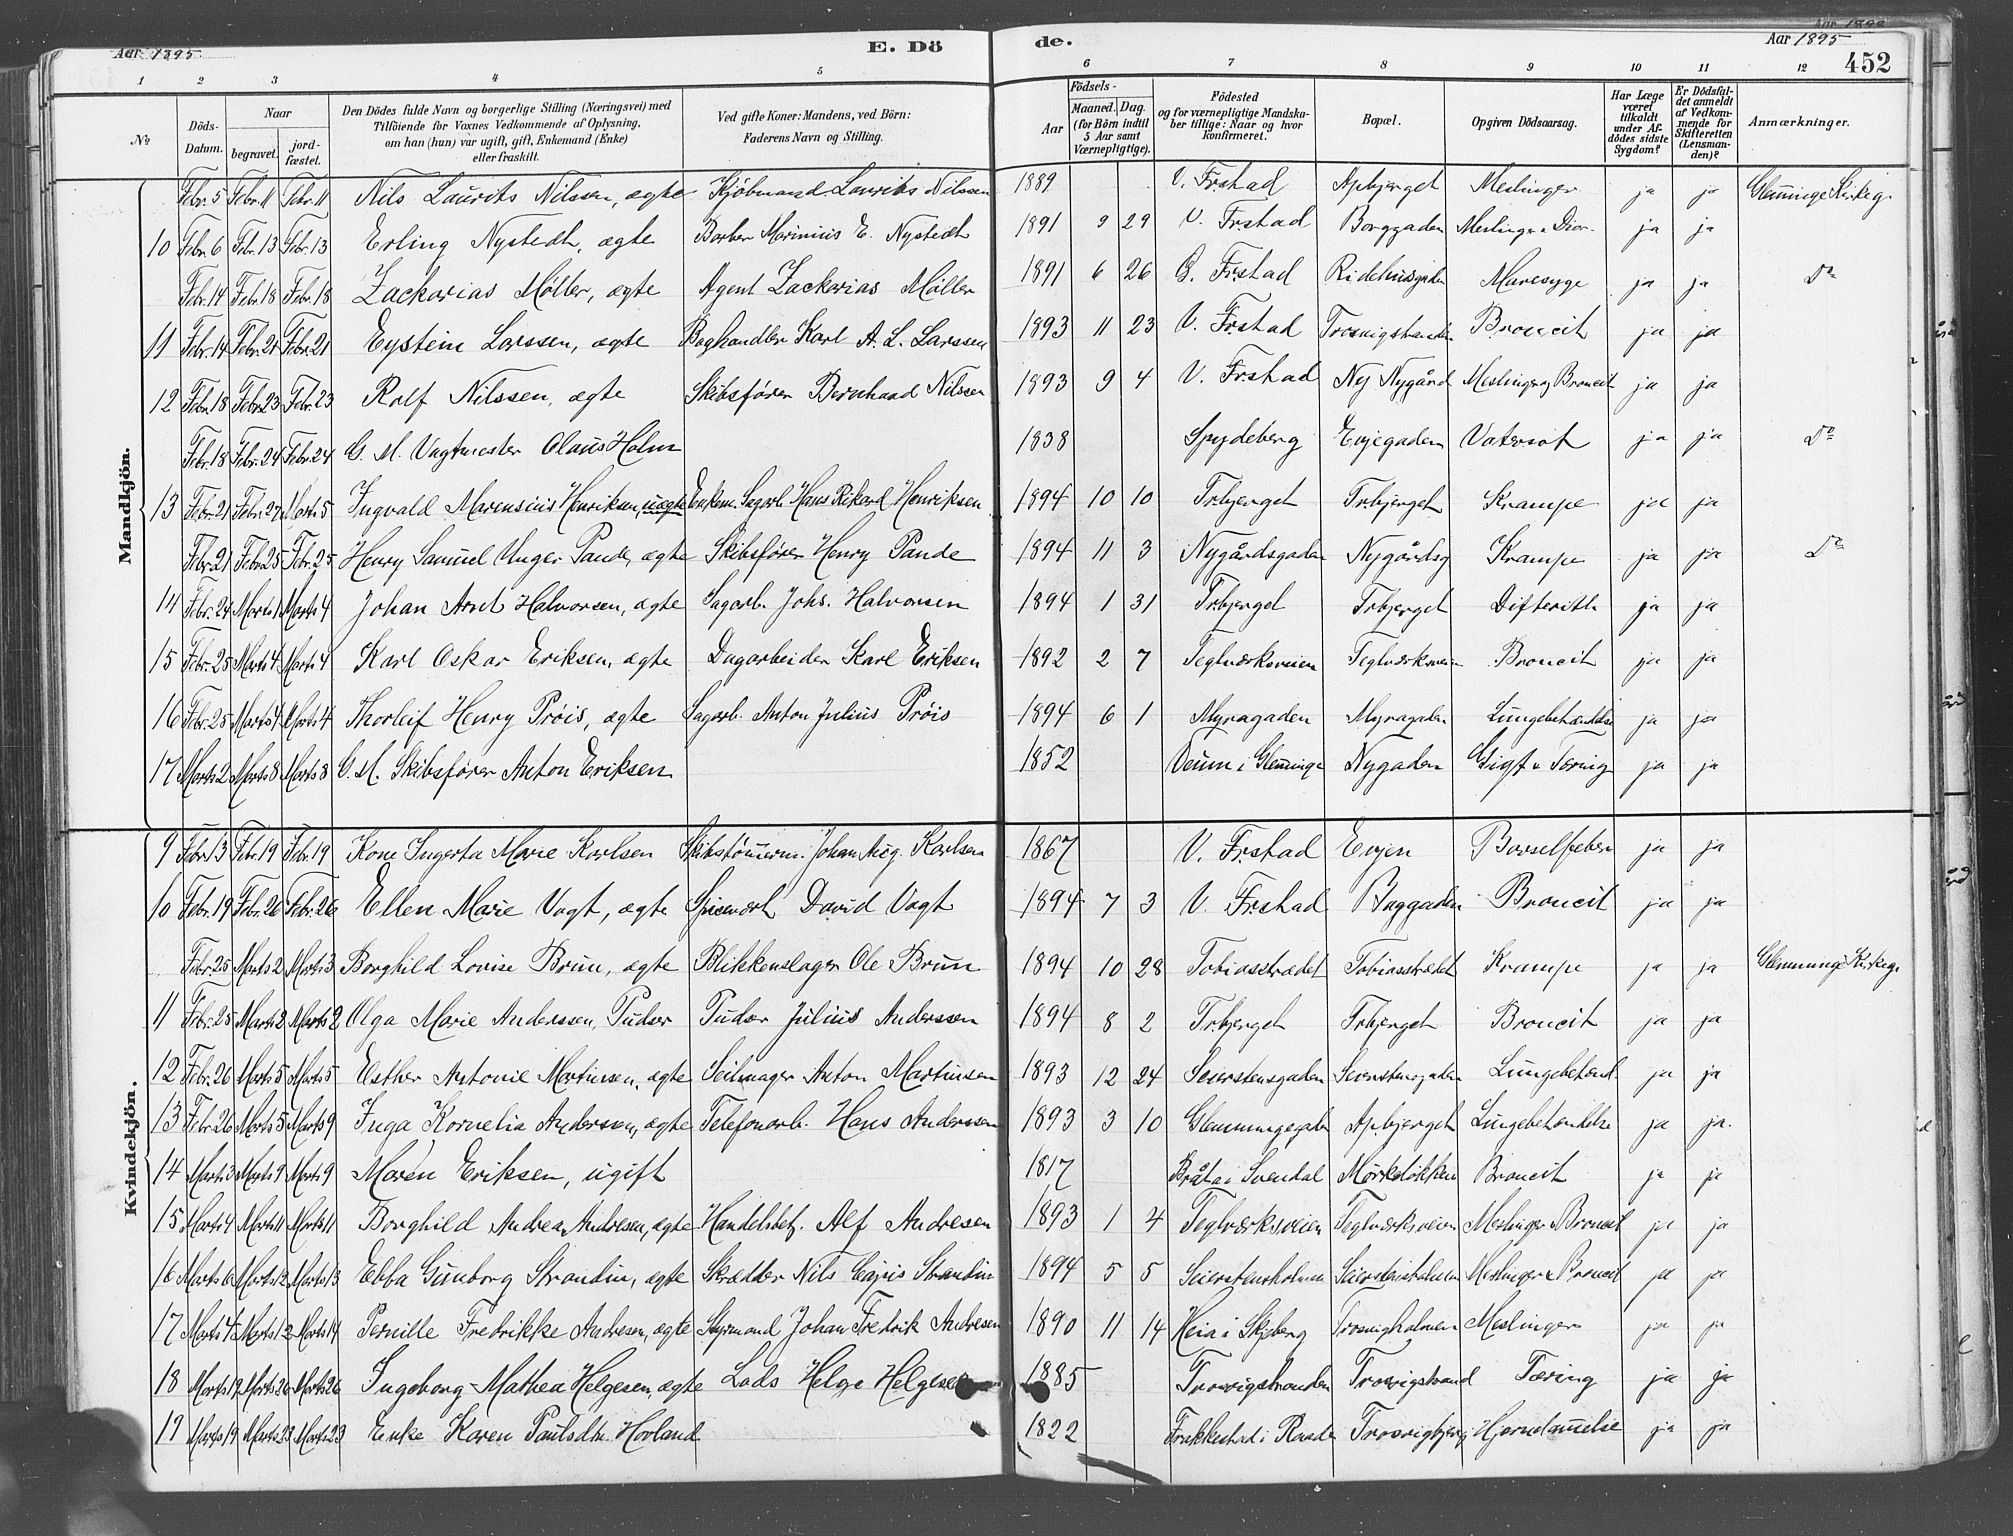 Aar 1895. E. Döde. Aar 1895 452
1 2 3 4 5 6 7 8 9 10 11 12
№ Döds-Datum. Naar begravet. jordfæstet. Den Dödes fulde Navn og borgerlige Stilling (Næringsvei) med Tilföiende for Voxnes Vedkommende af Oplysning, om han (hun) var ugift, gift, Enkemand (Enke) eller fraskilt. Ved gifte Koner: Mandens, ved Börn: Faderens Navn og Stilling. Födsels- Aar Maaned. Dag. (for Börn indtil 5 Aar samt Værnepligtige). Födested og for værnepligtige Mandskaber tillige: Naar og hvor konfirmeret. Bopæl. Opgiven Dödsaarsag. Har Læge været tilkaldt under Afdödes sidste Sygdom? Er Dödsfaldet anmeldt af Vedkommende for Skifteretten (Lensmanden)? Anmærkninger.
Mandkjön.
Febr. 5 Febr. 11 Febr. 11 Nils Laurits Nilssen, ægte Kjöbmand Laurits Nilssen 1889 V. Fr.stad Apbjerget Meslinger ja ja Glemminge Kirkeg.
10 Febr. 6 Febr. 13 Febr. 13 Erling Nystedt, ægte Barber Marinius E. Nystedt 1891 9 29 V. Fr.stad Borggaden Meslinger ja ja
Febr. 14 Febr. 18 Febr. 18 Zackarias Møller, ægte Agent Zackarias Møller 1891 6 26 G. Fr.stad Ridehusgaden Mavesyge ja ja Do
11 Febr. 14 Febr. 21 Febr. 21 Eystein Larssen, ægte Boghandler Karl A. L. Larssen 1893 11 23 V. Fr.stad Trosvigstranden Broncit ja ja
12 Febr. 18 Febr. 23 Febr. 23 Rolf Nilssen, ægte Skibsfører Bernhard Nilssen 1893 9 4 V. Fr.stad Ny Nygård Meslinger og Broncit ja ja
Febr. 18 Febr. 24 Febr. 24 G. M. Vagtmester Olaus Holm 1838 Spydeberg Evjegaden Vatersot ja ja Do
13 Febr. 21 Febr. 27 Marts 5 Ingvald Marensius Henriksen, uægte Enkem. Sagarb. Hans Rikard Henriksen 1894 10 10 Trbjerget Trbjerget Krampe ja ja
Febr. 21 Febr. 25 Febr. 25 Henry Samuel Unger Pande, ægte Skibsfører Henry Pande 1894 11 3 Nygårdsgaden Nygårdsg Krampe ja ja Do
14 Febr. 24 Marts 1 Marts 4 Johan Arnt Halvorsen, ægte Sagarb. Johs. Halvorsen 1894 1 31 Trbjerget Trbjerget Difterith ja ja
15 Febr. 25 Marts 4 Marts 4 Karl Oskar Eriksen, ægte Dagarbeider Karl Eriksen 1892 2 7 Teglværksveien Teglværksveien Broncit ja ja
16 Febr. 25 Marts 4 Marts 4 Thorleif Henry Prøis, ægte Sagarb. Anton Julius Prøis 1894 6 1 Myragaden Myragaden Lungebetændelse ja ja
17 Marts 2 Marts 8 Marts 8 G. M. Skibsfører Anton Eriksen 1852 Veum i Glemminge Nygaden Gigt & Tæring ja ja
Kvindekjön.
9 Febr. 13 Febr. 19 Febr. 19 Kone Ingerta Marie Karlsen Skibstømerm. Johan Aug. Karlsen 1867 V. Fr.stad Evjen Barselfeber ja ja
10 Febr. 19 Febr. 26 Febr. 26 Ellen Marie Vogt, ægte Spisevært David Vogt 1894 7 3 V. Fr.stad Baggaden Broncit ja ja
Febr. 25 Marts 2 Marts 3 Borghild Lovise Brun, ægte Blikkenslager Ole Brun 1894 10 28 Tobiasstrædet Tobiasstrædet Krampe ja ja Glemminge Kirkeg.
11 Febr. 25 Marts 2 Marts 2 Olga Marie Anderssen, Pudser Julius Anderssen 1894 8 2 Trbjerget Trbjerget Broncit ja ja
12 Febr. 26 Marts 5 Marts 5 Esther Antonie Martinsen, ægte Seilmager Anton Martinsen 1893 12 24 Seierstensgaden Seierstensgaden Lungebetænd. ja ja
13 Febr. 26 Marts 5 Marts 9 Inga Kornelia Anderssen, ægte Telefonarb. Hans Anderssen 1893 3 10 Glemmingegaden Apbjerget Lungebetændelse ja ja.
14 Marts 3 Marts 9 Marts 9 Maren Eriksen, ugift 1817 Bråta i Svendal Mørkeløkken Broncit ja ja
15 Marts 4 Marts 11 Marts 11 Borghild Andrea Andresen, ægte Handelsbet. Alf Andresen 1893 1 4 Teglværksveien Teglværksveien Meslinger & Broncit ja ja
16 Marts 6 Marts 12 Marts 13 Ebba Gunborg Strandin, ægte Skrædder Nils Strandin 1894 5 5 Seierstensholmen Seierstensholmen Meslinger & Broncit ja ja
17 Marts 7 Marts 12 Marts 14 Pernille Fredrikke Andresen, ægte Styrmand Johan Fredrik Andresen 1890 11 14 Heia i Skjeberg Trosvigholmen Meslinger ja ja
18 Marts 19 Marts 26 Marts 26 Ingeborg Mathea Helgesen, ægte Lods Helge Helgesen 1885 Trosvigstranden Trosvigstrand Tæring ja ja
19 Marts 19 Marts 23 Marts 23 Enke Karen Paulsdtr. Hovland 1822 Frakkestad i Raade Trosvigbjerg Hjernelammelse ja ja